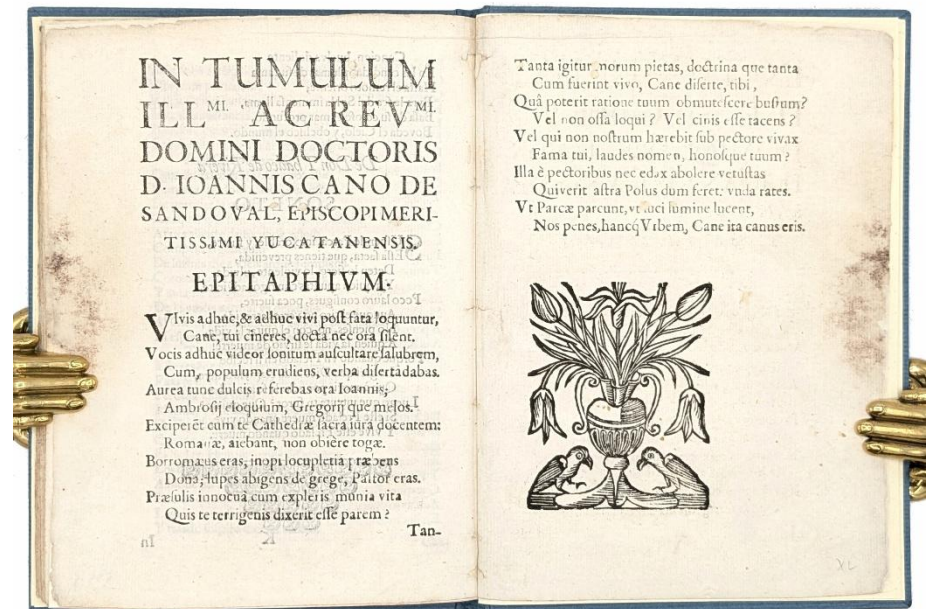 IN TUMULUM
ILL MI. AC REV MI.
DOMINI DOCTORIS
D. IOANNIS CANO DE
SANDOVAL, EPISCOPI MERI-
TISSIMI YUCATANENSIS.
EPITAPHIVM.
VIvis adhuc, & adhuc vivi poſt fata loquuntur,
Cane, tui cineres, docta nec ora ſilent.
Vocis adhuc videor ſonitum auſcultare ſalubrem,
Cum, populum erudiens, verba diſerta dabas.
Aurea tunc dulcis referebas ora Ioannis;
Ambroſij eloquium, Gregorij que melos.
Exciperēt cum te Cathedræ ſacra iura docentem:
Romanæ, aiebant, non obiêre togæ.
Borromæus eras, inopi locupletia præbens
Dona; lupes abigens de grege, Paſtor eras.
Præſulis innocuâ cum expleris munia vita
Quis te terrigenis dixerit eſſe parem?
Tan-
Tanta igitur morum pietas, doctrina que tanta
Cum fuerint vivo, Cane diſerte, tibi,
Quâ poterit ratione tuum obmuteſcere buſtum?
Vel non oſſa loqui? Vel cinis eſſe tacens?
Vel qui non noſtrum hærebit ſub pectore vivax
Fama tui, laudes nomen, honoſque tuum?
Illa è pectoribus nec edax abolere vetuſtas
Quiverit aſtra Polus dum feret: vnda rates.
Vt Parcæ parcunt, vt luci lumine lucent,
Nos penes, hancq Vrbem, Cane ita canus eris.
XL